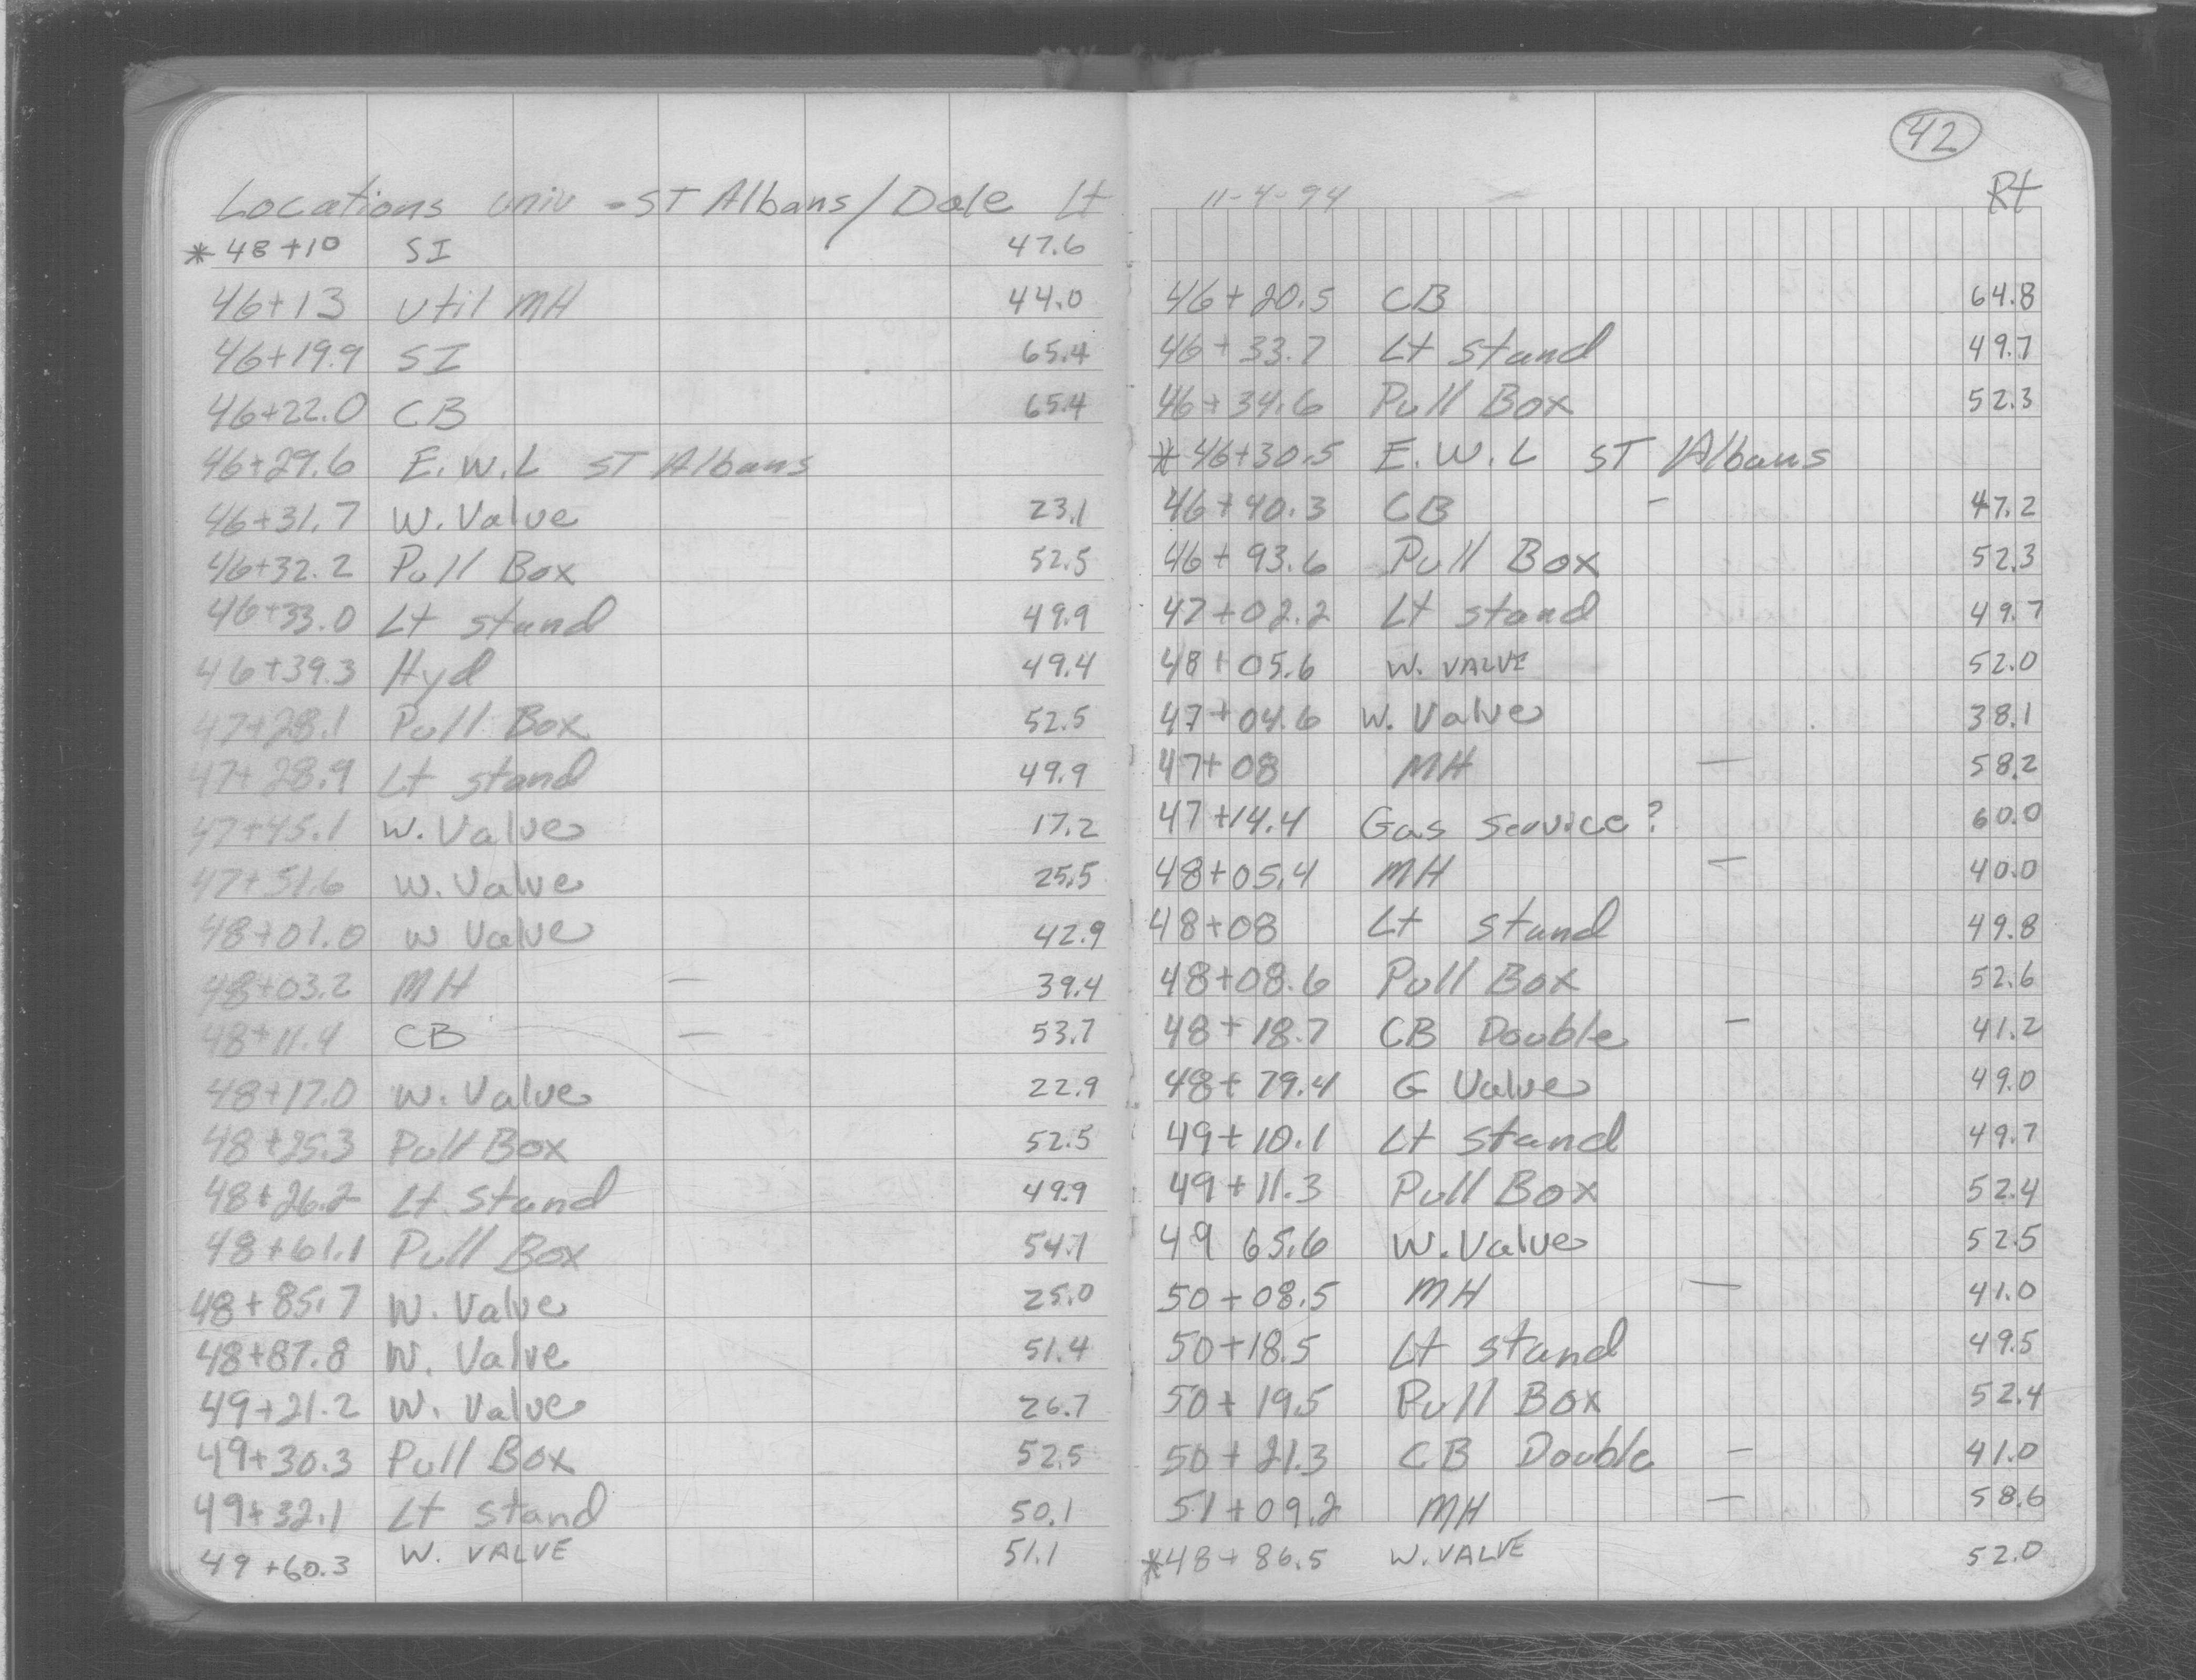 Locations Univ - ST Albans/Dale Lt
* 48+10 SI 47.6
46+13 Util MH 44.0
46+19.9 SI 65.4
46+22.0 CB 65.4
46+29.6 E.W.L ST Albans
46+31.7 W. Valve 23.1
46+32.2 Pull Box 52.5
46+33.0 Lt stand 49.9
46+39.3 Hyd 49.4
47+28.1 Pull Box 52.5
47+28.9 Lt stand 49.9
47+45.1 W. Valve 17.2
47+51.6 W. Valve 25.5
48+01.0 W Valve 42.9
48+03.2 MH — 39.4
48+11.4 CB — 53.7
48+17.0 W. Valve 22.9
48+25.3 Pull Box 52.5
48+26.2 Lt stand 49.9
48+61.1 Pull Box 54.1
48+85.7 W. Valve 25.0
48+87.8 W. Valve 51.4
49+21.2 W. Valve 26.7
49+30.3 Pull Box 52.5
49+32.1 Lt stand 50.1
49+60.3 W. VALVE 51.1
42
11-4-94 Rt
46+20.5 CB 64.8
46+33.7 Lt stand 49.7
46+34.6 Pull Box 52.3
* 46+30.5 E.W.L ST Albans
46+40.3 CB — 47.2
46+93.6 Pull Box 52.3
47+02.2 Lt stand 49.7
48+05.6 W. VALVE 52.0
47+04.6 W. Valve 38.1
47+08 MH — 58.2
47+14.4 Gas Service? 60.0
48+05.4 MH — 40.0
48+08 Lt stand 49.8
48+08.6 Pull Box 52.6
48+18.7 CB Double — 41.2
48+79.4 G Valve 49.0
49+10.1 Lt stand 49.7
49+11.3 Pull Box 52.4
49 65.6 W. Valve 52.5
50+08.5 MH — 41.0
50+18.5 Lt stand 49.5
50+19.5 Pull Box 52.4
50+21.3 CB Double — 41.0
51+09.2 MH — 58.6
*48+86.5 W. VALVE 52.0